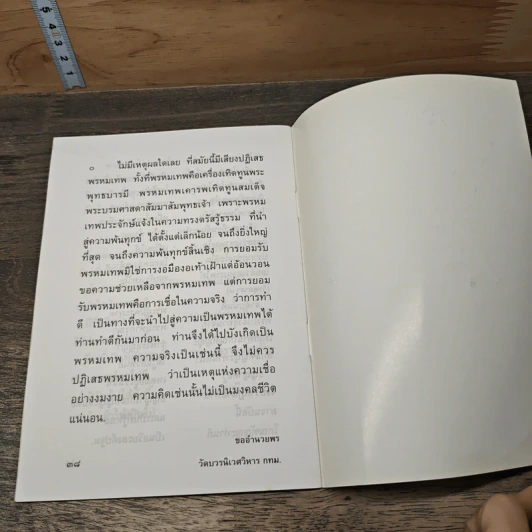 ๐ ไม่มีเหตุผลใดเลย ที่สมัยนี้มีเสียงปฏิเสธ
พรหมเทพ ทั้งที่พรหมเทพคือเครื่องเทิดทูนพระ
พุทธบารมี พรหมเทพเคารพเทิดทูนสมเด็จ
พระบรมศาสดาสัมมาสัมพุทธเจ้า เพราะพรหม
เทพประจักษ์แจ้งในความทรงตรัสรู้ธรรม ที่นำ
สู่ความพ้นทุกข์ ได้ตั้งแต่เล็กน้อย จนถึงยิ่งใหญ่
ที่สุด จนถึงความพ้นทุกข์สิ้นเชิง การยอมรับ
พรหมเทพมิใช่การงอมืองอเท้าเฝ้าแต่อ้อนวอน
ขอความช่วยเหลือจากพรหมเทพ แต่การยอม
รับพรหมเทพคือการเชื่อในความจริง ว่าการทำ
ดี เป็นทางที่จะนำไปสู่ความเป็นพรหมเทพได้
ท่านทำดีกันมาก่อน ท่านจึงได้ไปบังเกิดเป็น
พรหมเทพ ความจริงเป็นเช่นนี้ จึงไม่ควร
ปฏิเสธพรหมเทพ ว่าเป็นเหตุแห่งความเชื่อ
อย่างงมงาย ความคิดเช่นนั้นไม่เป็นมงคลชีวิต
แน่นอน.
ขออำนวยพร
๓๘ วัดบวรนิเวศวิหาร กทม.
5
4
3
2
1